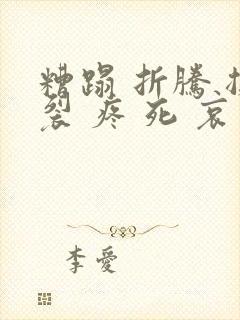 糟蹋 折騰
裂 疼 死 哀
李愛